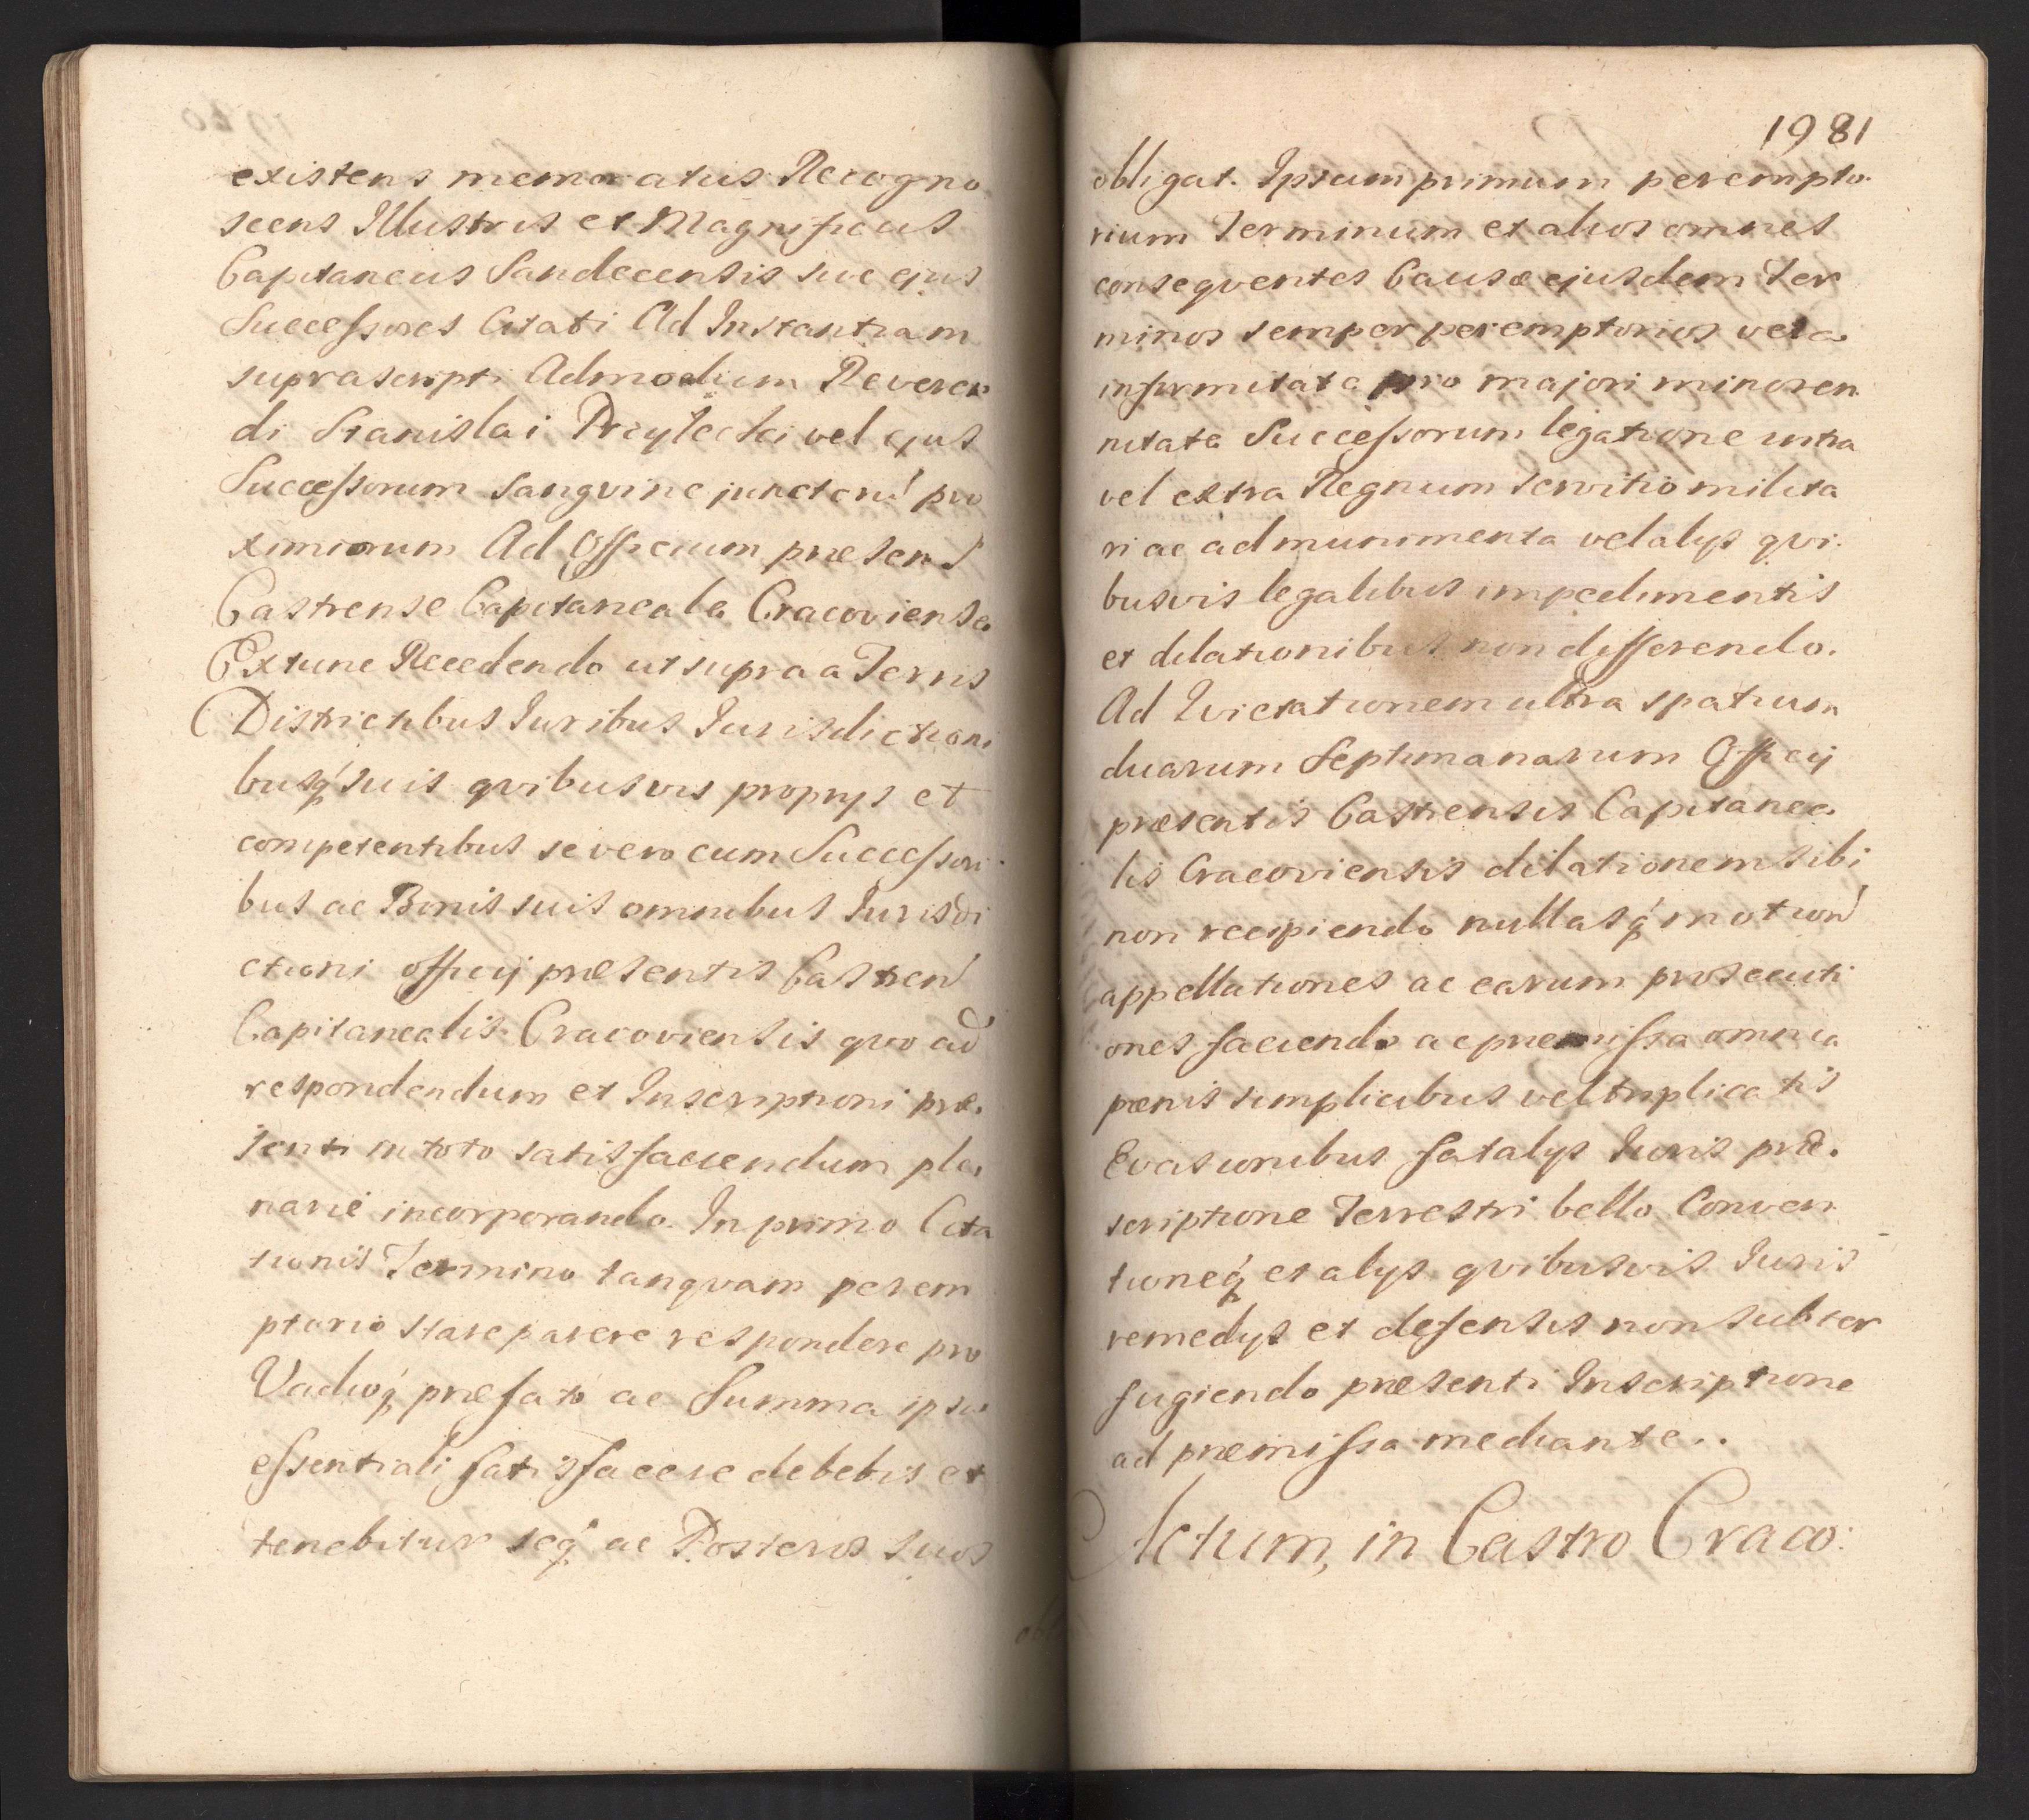 existens memoratus Recogno
scens Illustris et Magnificus
Capitaneus Sandecensis sive ejus
Successores Citati Ad Instantiam
suprascripti Admodum Reveren
di Stanislai Przyłecki vel ejus
Successorum sangvine junctorū pro
ximiorum Ad Officium præsens
Castrense Capitaneale Cracoviense
Extunc Recedendo ut supra a Terris
Districtibus Iuribus Iurisdictioni
busq́ suis qvibusvis proprys et
competentibus se vero cum Successori
bus ac Bonis suis omnibus Iurisdi
ctioni officij præsentis Castren
Capitanealis Cracoviensis qvo ad
respondendum et Inscriptioni præ.
senti in toto satisfaciendum ple
narie incorporando. In primo Cita
tionis Termino tanqvam perem
ptorio stare parere respondere pro
Vadioq́ præfato ac Summa ipsa
essentiali satisfacere debebit et
tenebitur seq́ ac Posteros suos
1981
obligat. Ipsum primum perempto.
rium Terminum et alios omnes
conseqventes Causæ ejusdem Ter
minos semper peremptorios vera
infirmitate pro majori minoren
nitate Successorum legatione intra
vel extra Regnum servitio milita
ri ac ad munimenta vel alys qvi.
busvis legalibus impedimentis
et dilationibus non differendo.
Ad Qvietationem ultra spatium
duarum Septimanarum Officij
præsentis Castrensis Capitanea
lis Cracoviensis dilationem sibi
non recipiendo nullasq́ motion
appellationes ac earum prosecuti
ones faciendo ac præmissa omnia
pœnis simplicibus vel triplicatis
Evasionibus fatalys Iuris præ.
scriptione Terrestri bello Conven
tioneq́ et alys qvibusvis Iuris
remedys et defensis non subter
fugiendo præsenti Inscriptione
ad præmissa mediante..
Actum, in Castro Craco: